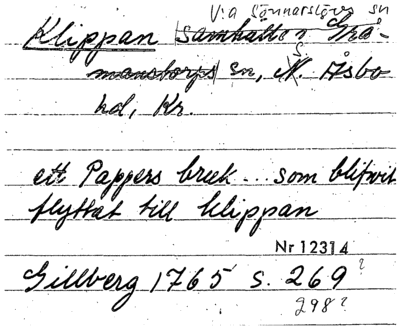 V:a Sönnarslövs sn
Klippan samhälle i Grå-
manstorps sn, N. Åsbo
S
hd, Kr.
ett Pappers bruk... som blifvit
flyttat till klippan
Nr 12314
Gillberg 1765 s. 269 ?
298?